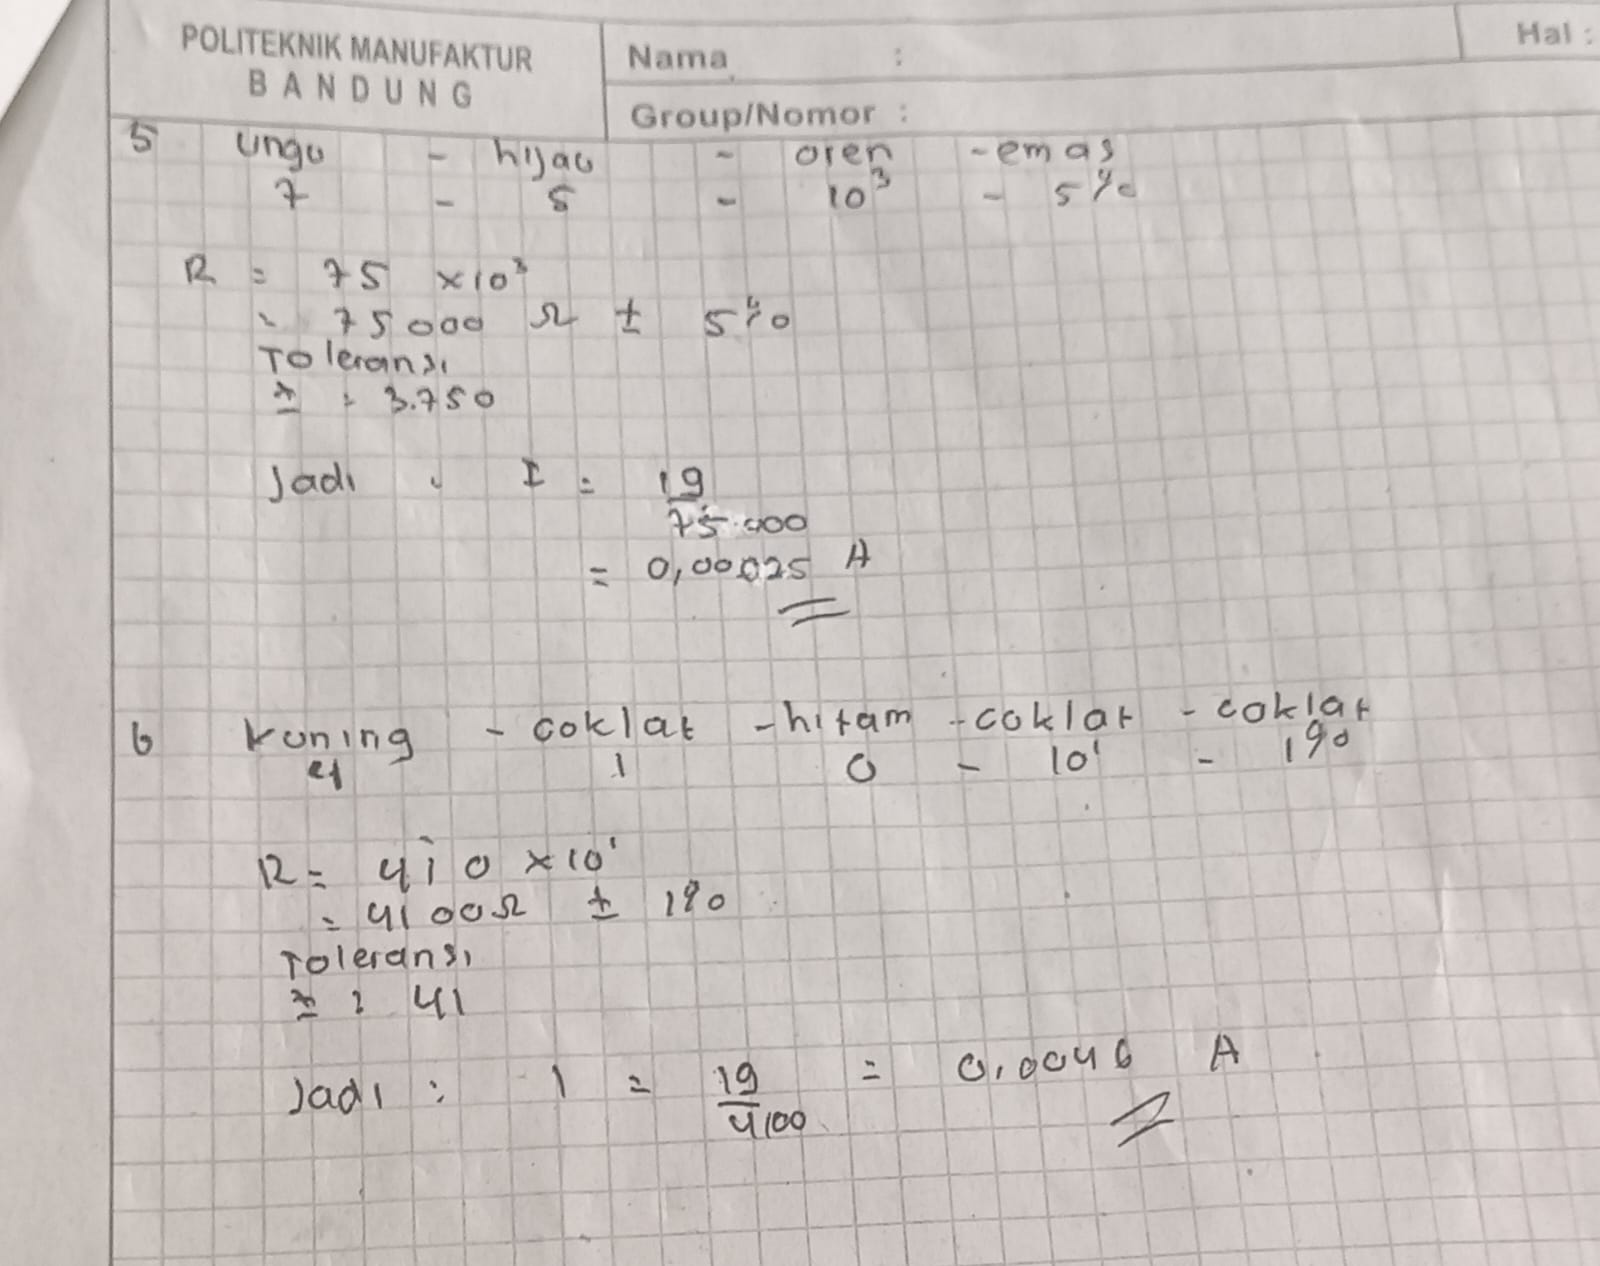 POLITEKNIK MANUFAKTUR
BANDUNG
Nama :
Hal :
Group/Nomor :
5 Ungu - hijau - oren - emas
7 - 5 - 10³ - 5%
R = 75 x10³
= 75000 Ω ± 5%
Toleransi
± : 3.750
Jadi : I = 19
75.000
= 0,00025 A
6 Kuning - coklat - hitam - coklat - coklat
4 1 0 - 10¹ - 1%
R = 410 x10¹
= 4100Ω ± 1%
Toleransi
± : 41
Jadi : I = 19 = 0,0046 A
4100